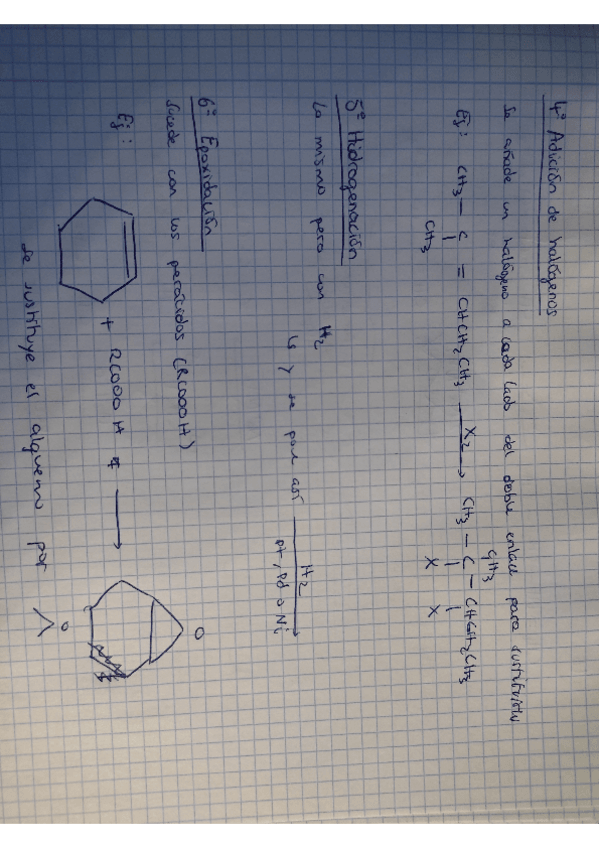 4º Adición de halógenos
Se añade un halógeno a cada lado del doble enlace para sustituirlo
Ej: CH3 – C = CHCH2CH3 X2→ CH3 – C – CHCH2CH3
CH3 CH3 X X
5º Hidrogenación
Lo mismo pero con H2
↳ y se pone así H2→
Pt, Pd o Ni
6º Epoxidación
Sucede con los perácidos (RCOOOH)
Ej: + RCOOOH → O
Se sustituye el alqueno por O